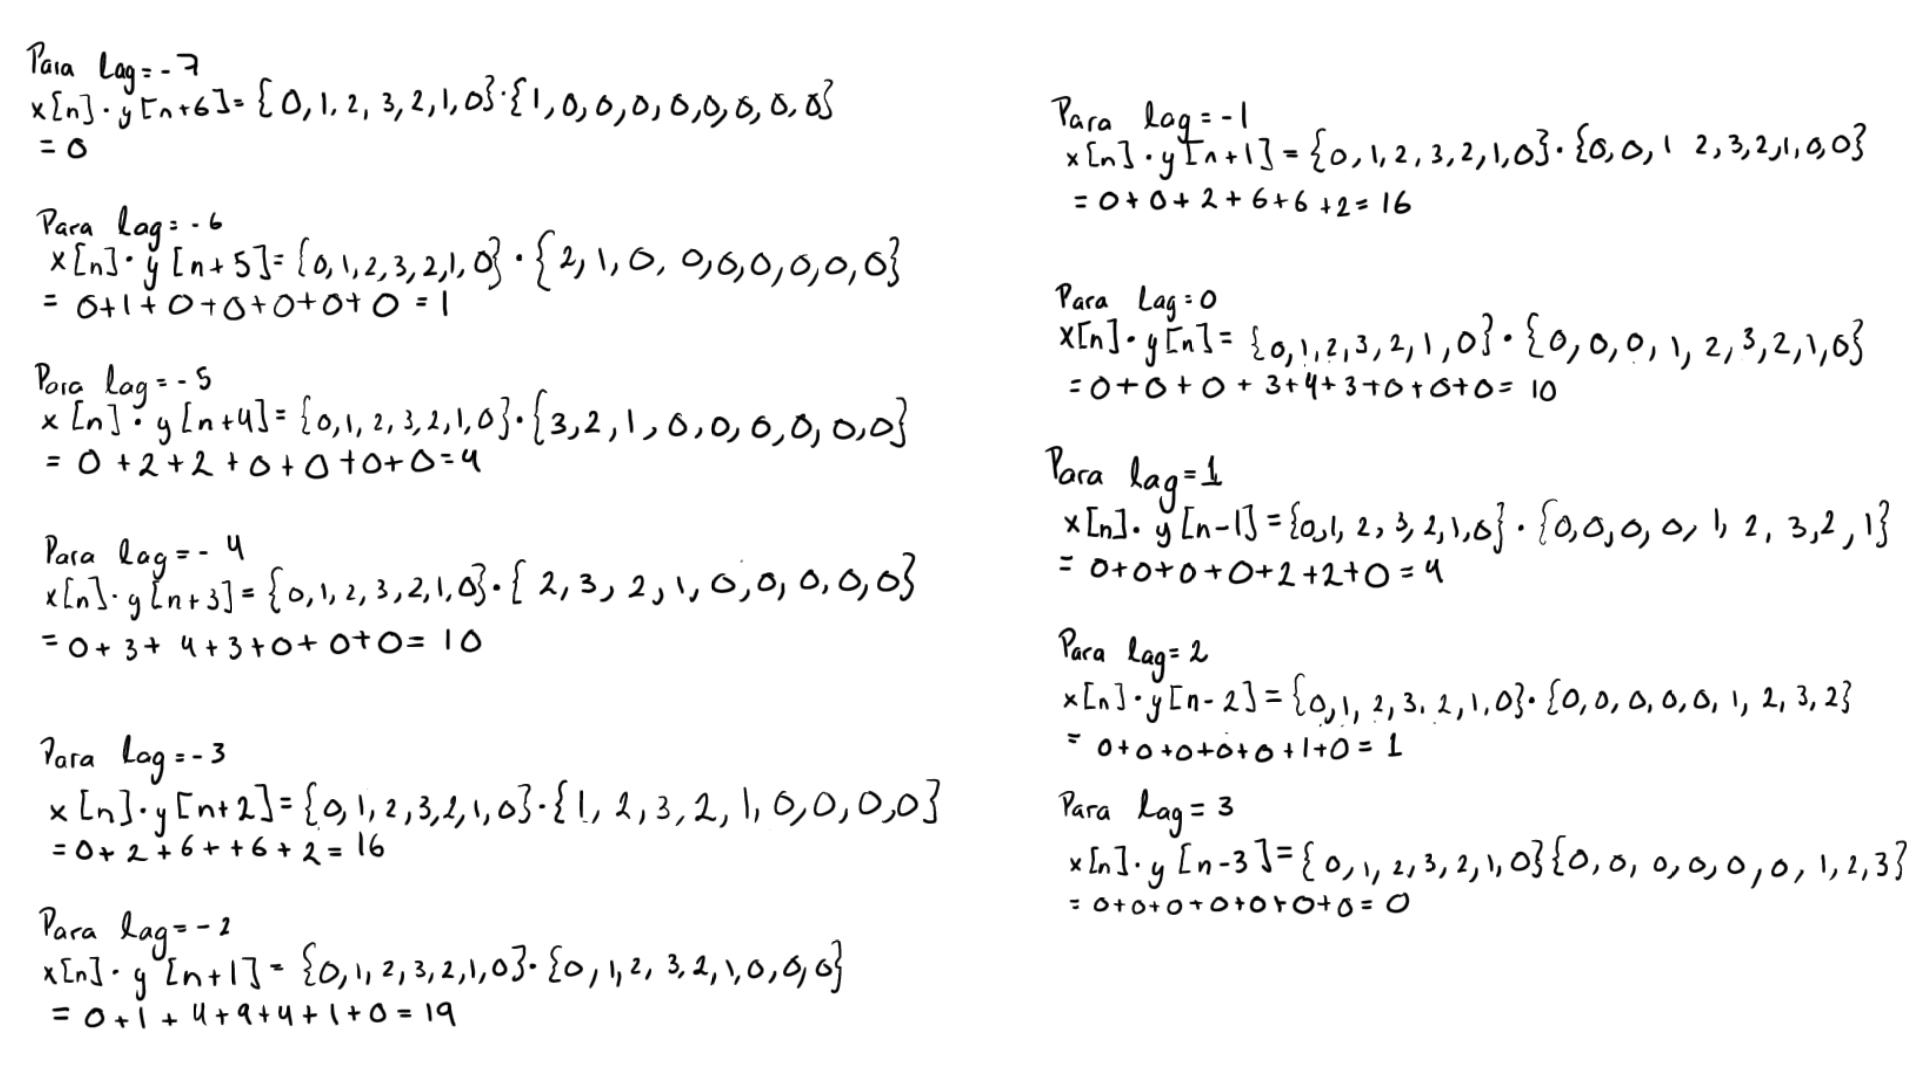 Para lag=-7
x[n]·y[n+6]={0,1.2,3,2,1,0}·{1,0,0,0,0,0,0,0,0}
=0
Para lag=-6
x[n]·y[n+5]={0,1,2,3,2,1,0}·{2,1,0,0,0,0,0,0,0}
=0+1+0+0+0+0+0=1
Para lag=-5
x[n]·y[n+4]={0,1,2,3,2,1,0}·{3,2,1,0,0,0,0,0,0}
=0+2+2+0+0+0+0=4
Para lag=-4
x[n]·y[n+3]={0,1,2,3,2,1,0}·{2,3,2,1,0,0,0,0,0}
=0+3+4+3+0+0+0=10
Para lag=-3
x[n]·y[n+2]={0,1,2,3,2,1,0}·{1,2,3,2,1,0,0,0,0}
=0+2+6++6+2=16
Para lag=-2
x[n]·y[n+1]={0,1,2,3,2,1,0}·{0,1,2,3,2,1,0,0,0}
=0+1+4+9+4+1+0=19
Para lag=-1
x[n]·y[n+1]={0,1,2,3,2,1,0}·{0,0,1 2,3,2,1,0,0}
=0+0+2+6+6+2=16
Para Lag=0
x[n]·y[n]={0,1,2,3,2,1,0}·{0,0,0,1,2,3,2,1,0}
=0+0+0+3+4+3+0+0+0=10
Para lag=1
x[n].y[n-1]={0,1,2,3,2,1,0}·{0,0,0,0,1,2,3,2,1}
=0+0+0+0+2+2+0=4
Para lag=2
x[n]·y[n-2]={0,1,2,3.2,1,0}·{0,0,0,0,0,1,2,3,2}
=0+0+0+0+0+1+0=1
Para lag=3
x[n].y[n-3]={0,1,2,3,2,1,0}{0,0,0,0,0,0,1,2,3}
=0+0+0+0+0+0+0+0=0